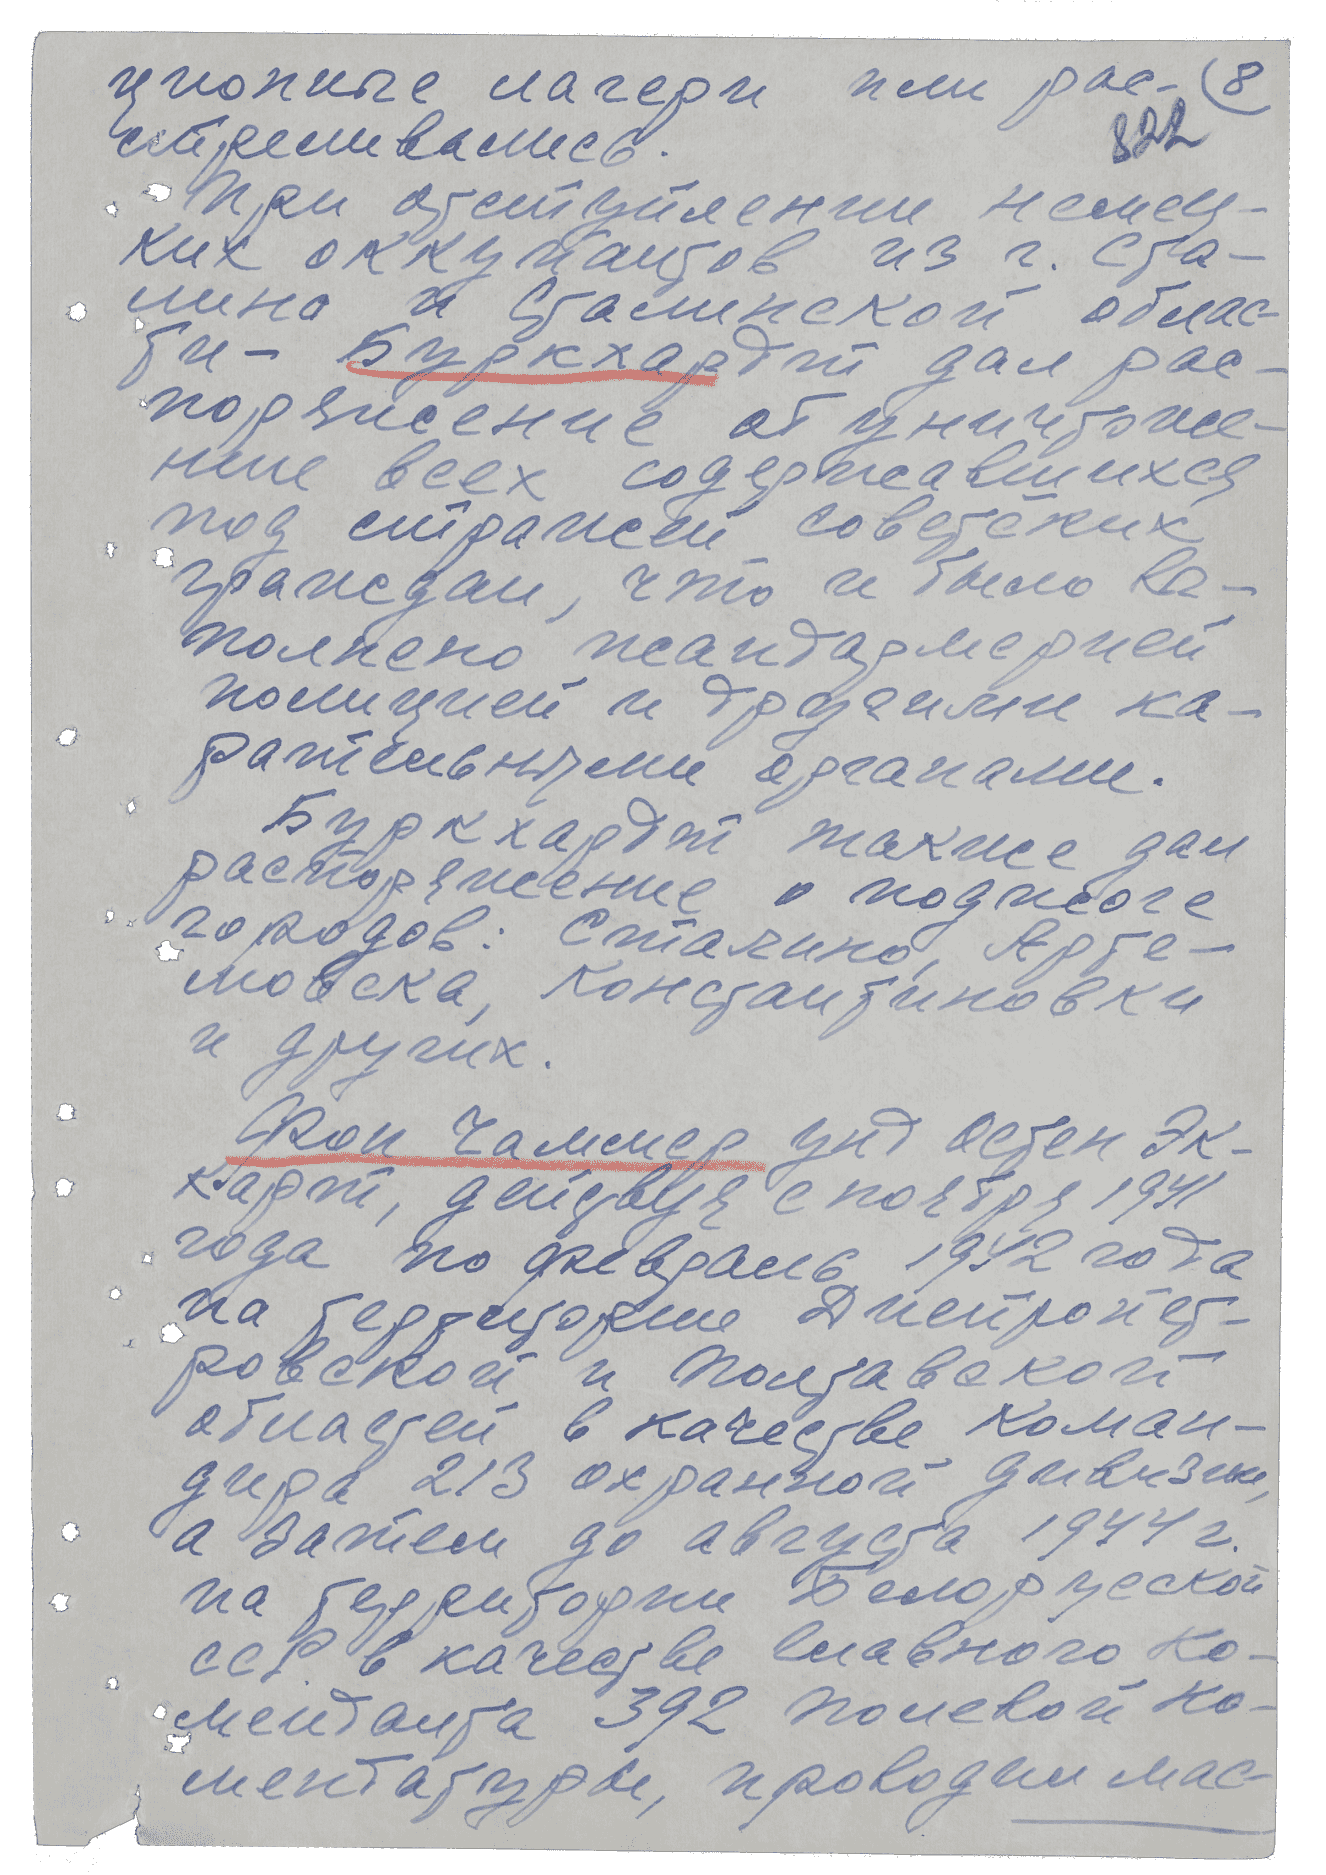 ционные лагери или рас- 8
стреливались. 822
При отступлении немец-
ких оккупантов из г. Ста-
лино и Сталинской облас-
ти - Буркхардт дал рас-
поряжение об уничтоже-
ние всех содержавшихся
под стражей советских
граждан, что и было вы-
полнено жандармерией
полицией и другими ка-
рательными органами.
Буркхардт также дал
распоряжение о поджоге
городов: Сталино, Арте-
мовска, Константиновки
и других.
Фон Чаммер унд Остен Эк-
карт, действуя с ноября 1941
года по февраль 1942 года
на территории Днепропет-
ровской и Полтавской
областей в качестве коман-
дира 213 охранной дивизии,
а затем до августа 1944 г.
на территории Белорусской
ССР в качестве главного ко-
менданта 392 полевой ко-
мендатуры, проводил мас-